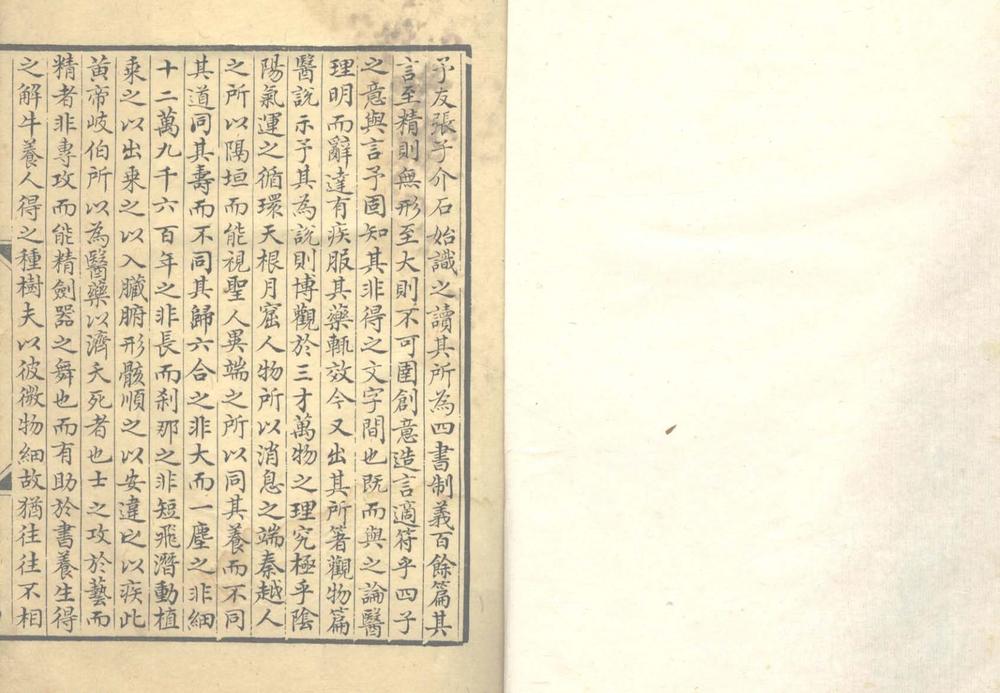 予友張子介石始識之讀其所為四書制義百餘篇其
言至精則無形至大則不可圉創意造言適符乎四子
之意與言予固知其非得之文字間也既而與之論醫
理明而辭達有疾服其藥輒效今又出其所著觀物篇
醫說示予其為說則博觀於三才萬物之理究極乎陰
陽氣運之循環天根月窟人物所以消息之端秦越人
之所以隔垣而能視聖人異端之所以同其養而不同
其道同其壽而不同其歸六合之非大而一塵之非細
十二萬九千六百年之非長而刹那之非短飛潛動植
乘之以出乘之以入臟腑形骸順之以安違之以疾此
黃帝岐伯所以為醫藥以濟夭死者也士之攻於藝而
精者非專攻而能精劍器之舞也而有助於書養生得
之解牛養人得之種樹夫以彼微物細故猶往往不相